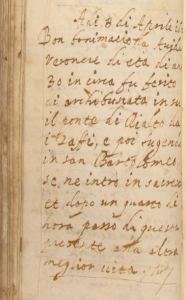 Adi 8 di Aprile
Bon
Veronese di età di an
30 in circa fu ferito
di archibusata in su
il ponte di Rialto da
i Zaffi, e poi fugendo
in san Bartolomeo
se, ne intrò in sacres
et dopo un quarto di
hora passò di questa
presente alla altra
meglior vita.